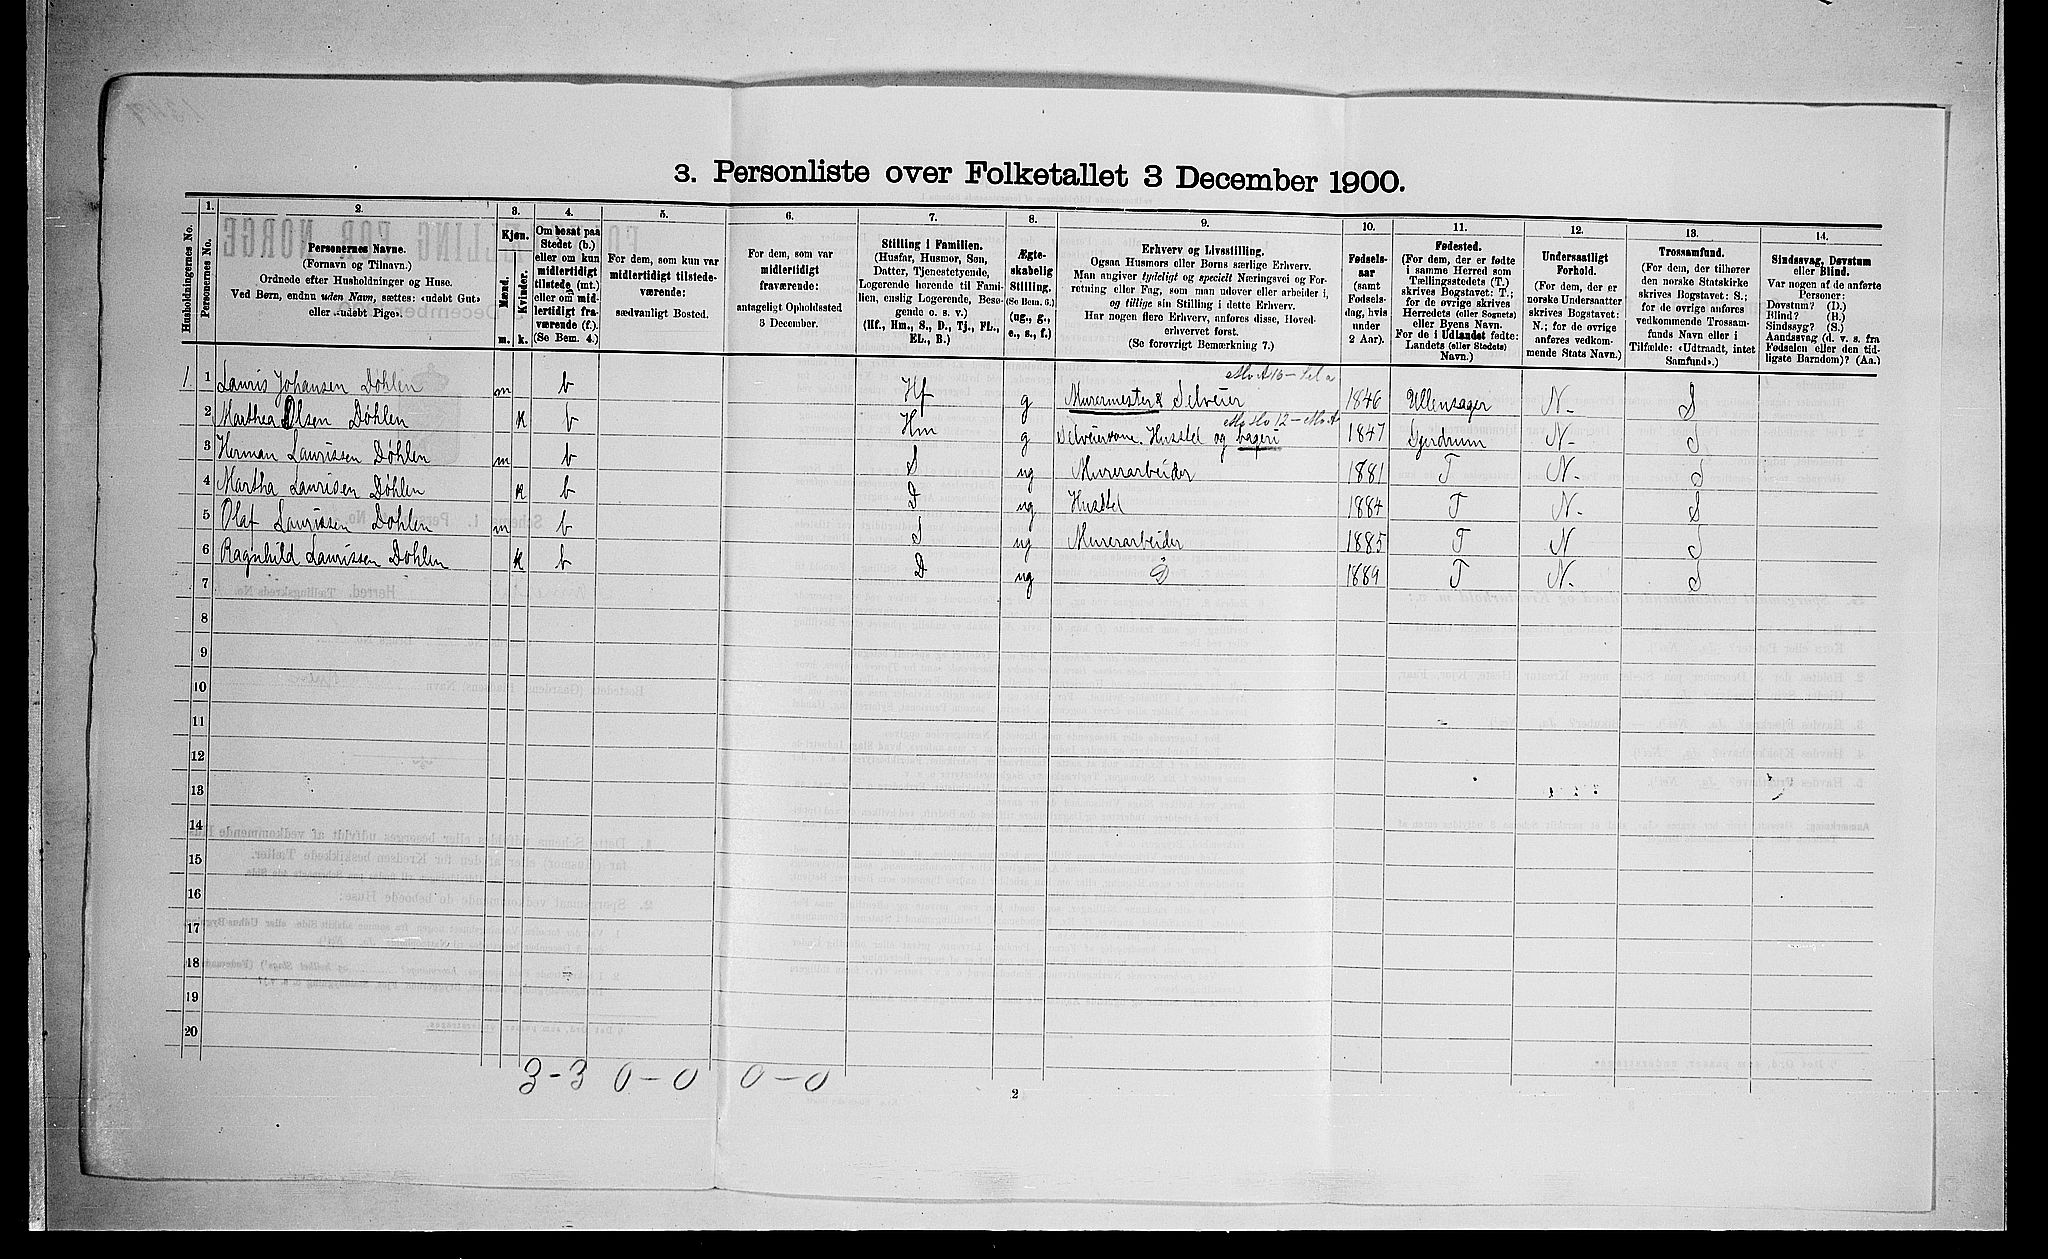 3. Personliste over Folketallet 3 December 1900.
1. 2. 3. 4. 5. 6. 7. 8. 9. 10. 11. 12. 13. 14.
Husholdningernes No.
Personernes No.
Personernes Navne.
(Fornavn og Tilnavn.)
Ordnede efter Husholdninger og Huse.
Ved Børn, endnu uden Navn, sættes: «udøbt Gut»
eller «udøbt Pige».
Kjøn.
Mænd.
Kvinder.
m. k.
Om bosat paa
Stedet (b.)
eller om kun
midlertidigt
tilstede (mt.)
eller om mid-
lertidigt fra-
værende (f.).
(Se Bem. 4.)
For dem, som kun var
midlertidigt tilstede-
værende:
sædvanligt Bosted.
For dem, som var
midlertidigt
fraværende:
antageligt Opholdssted
3 December.
Stilling i Familien.
(Husfar, Husmor, Søn,
Datter, Tjenestetyende,
Logerende hørende til Fami-
lien, enslig Logerende, Besø-
gende o. s. v.)
(Hf., Hm., S., D., Tj., FL.,
EL., B.)
Ægte-
skabelig
Stilling.
(Se Bem. 6.)
(ug., g.,
e., s., f.)
Erhverv og Livsstilling.
Ogsaa Husmors eller Børns særlige Erhverv.
Man angiver tydeligt og specielt Næringsvei og For-
retning eller Fag, som man udøver eller arbeider i,
og tillige sin Stilling i dette Erhverv.
Har nogen flere Erhverv, anføres disse, Hoved-
erhvervet først.
(Se forøvrigt Bemærkning 7.)
Fødsels-
aar
(samt
Fødsels-
dag, hvis
under
2 Aar).
Fødested.
(For dem, der er fødte
i samme Herred som
Tællingsstedets (T.)
skrives Bogstavet: T.;
for de øvrige skrives
Herredets (eller Sognets)
eller Byens Navn.
For de i Udlandet fødte:
Landets (eller Stedets)
Navn.)
Undersaatligt
Forhold.
(For dem, der er
norske Undersaatter
skrives Bogstavet:
N.; for de øvrige
anføres vedkom-
mende Stats Navn.)
Trossamfund.
(For dem, der tilhører
den norske Statskirke
skrives Bogstavet: S.;
for de øvrige anføres
vedkommende Trossam-
funds Navn eller i
Tilfælde: «Udtraadt, intet
Samfund».)
Sindssvag, Døvstum
eller Blind.
Var nogen af de anførte
Personer:
Døvstum? (D.)
Blind? (B.)
Sindssyg? (S.)
Aandssvag (d. v. s. fra
Fødselen eller den tid-
ligste Barndom)? (Aa.)
1. 1 Lauris Johansen Døhlen m b Hf g Murermester & Selveier 1846 Ullensager N. S
2 Marthea Olsen Døhlen k b Hm g Selveierkone. Husstel og bageri 1847 Gjerdrum N. S
3 Herman Laurissen Døhlen m b S ug Murerarbeider 1881 T N. S
4 Martha Laurisen Døhlen k b D ug Husstel 1884 T N. S
5 Olaf Laurissen Døhlen m b S ug Murerarbeider 1885 T N S
6 Ragnhild Laurissen Døhlen k b D ug D 1889 T N. S
7
8
9
10
11
12
13
14
15
16
17
18
19
20
3-3 0-0 0-0
2